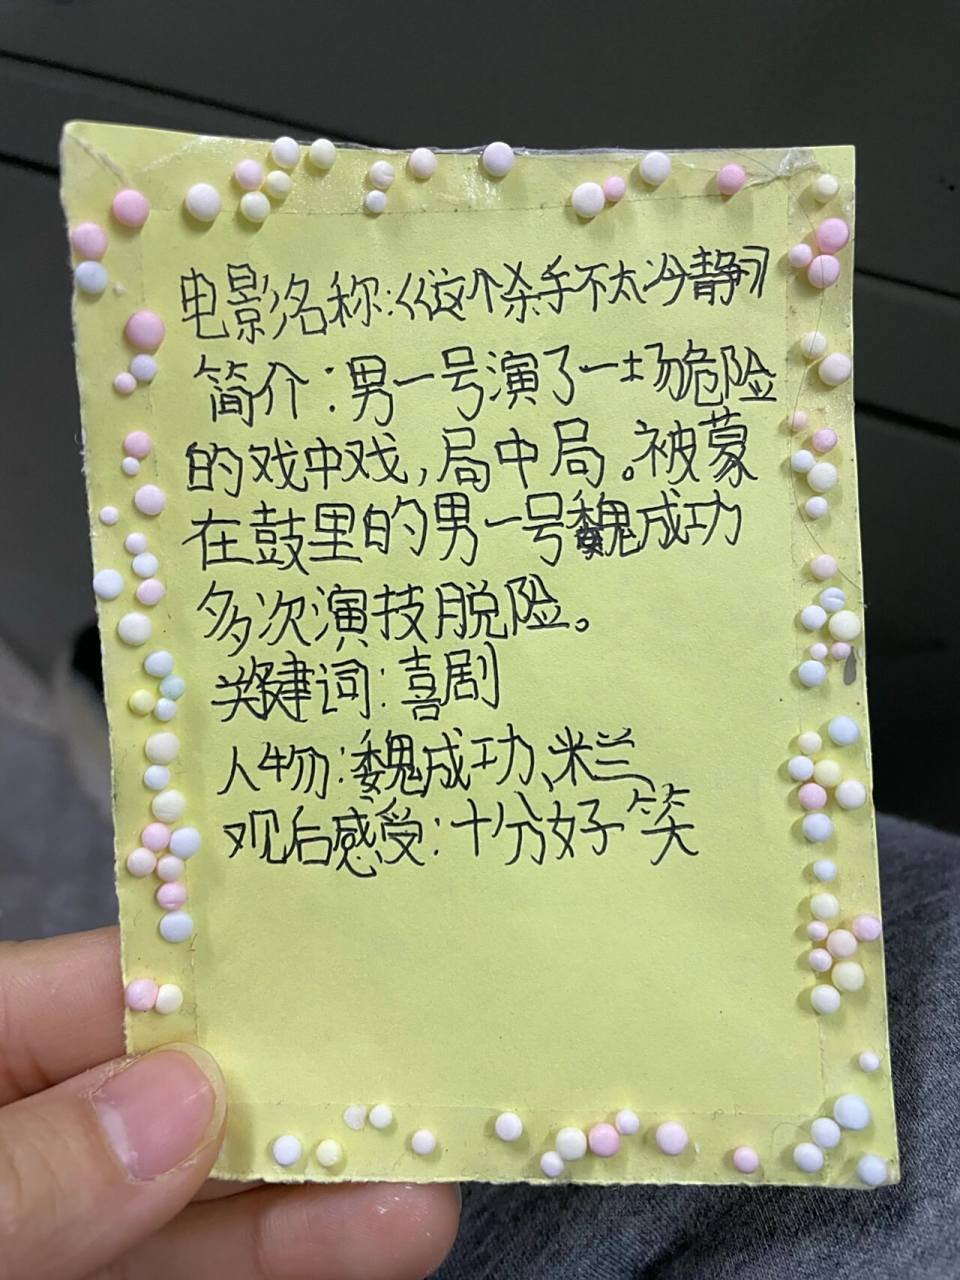 电影名称:《这个杀手不太冷静》
简介:男一号演了一场危险
的戏中戏,局中局。被蒙
在鼓里的男一号魏成功
多次演技脱险。
关键词:喜剧
人物:魏成功、米兰
观后感受:十分好笑